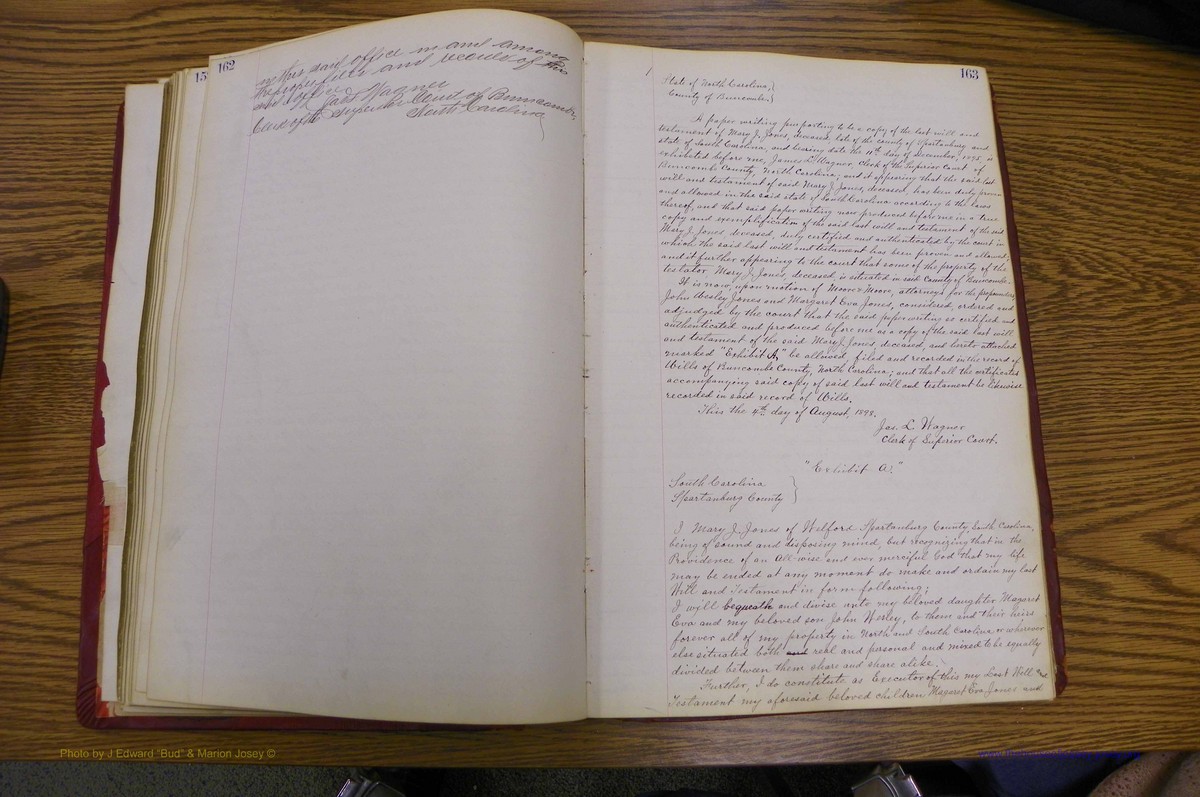 162
in this said office in and among
the proper files and records of this
said office
Jas L Wagner
Clerk of the Superior Court of Buncombe,
North Carolina
163
State of North Carolina,
County of Buncombe.
A paper writing purporting to be a copy of the last will and
testament of Mary J. Jones, deceased, late of the county of Spartanburg and
state of South Carolina, and bearing date the 11th day of December, 1895, is
exhibited before me, James L. Wagner Clerk of the Superior Court of
Buncombe County, North Carolina; and it appearing that the said last
will and testament of said Mary J. Jones, deceased, has been duly proven
and allowed in the said state of South Carolina according to the laws
thereof, and that said paper writing now produced before me is a true
copy and exemplification of the said last will and testament of the said
Mary J. Jones, deceased, duly certified and authenticated by the court in
which the said last will and testament has been proven and allowed;
and it further appearing to the court that some of the property of the
testator Mary J. Jones, deceased, is situated in said County of Buncombe.
It is now, upon motion of Moore & Moore, attorneys for the propounders,
John Wesley Jones and Margaret Eva Jones, considered, ordered and
adjudged by the court that the said paper writing so certified and
authenticated and produced before me as a copy of the said last will
and testament of the said Mary J. Jones, deceased, and hereto attached
marked "Exhibit A," be allowed, filed and recorded in the record of
Wills of Buncombe County, North Carolina; and that all the certificates
accompanying said copy of said last will and testament be likewise
recorded in said record of Wills.
This the 4th day of August, 1898.
Jas. L. Wagner
Clerk of Superior Court.
"Exhibit A."
South Carolina
Spartanburg County
I Mary J. Jones of Welford Spartanburg County South Carolina,
being of sound and disposing mind, but recognizing that in the
Providence of an All-wise and ever merciful God that my life
may be ended at any moment do make and ordain my last
Will and Testament in form following;
I will bequeath and divise unto my beloved daughter Magaret
Eva and my beloved son John Wesley, to them and their heirs
forever all of my property in North and South Carolina or wherever
else situated both real and personal and mixed to be equally
divided between them share and share alike.
Further, I do constitute as Executor of this my Last Will and
Testament my aforesaid beloved children Magaret Eva Jones and
Photo by J Edward "Bud" & Marion Josey ©